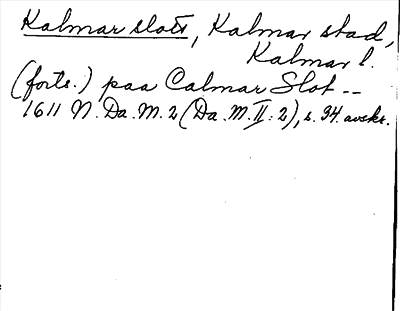 Kalmar slott, Kalmar stad,
Kalmar l.
(forts.) paa Calmar Slot --
1611 N. Da. M. 2 (Da. M. II: 2), s. 34. avskr.